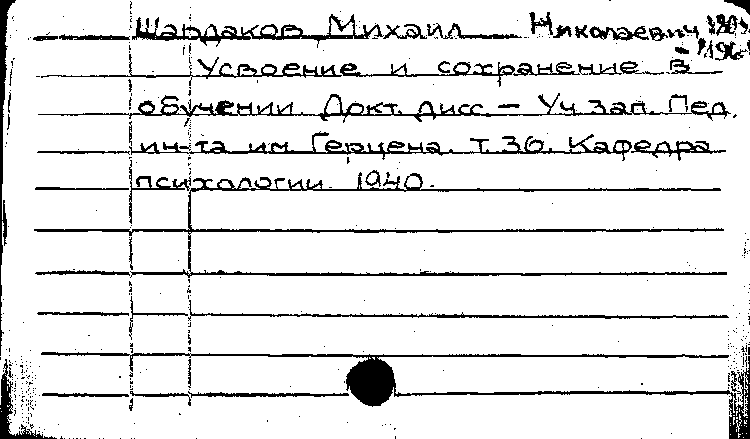 Шардаков Михаил Николаевич
Усвоение и сохранение в
обучении. Докт. дисс. – Уч. зап. Пед.
ин-та им. Герцена. Т. 36. Кафедра
психологии. 1940.